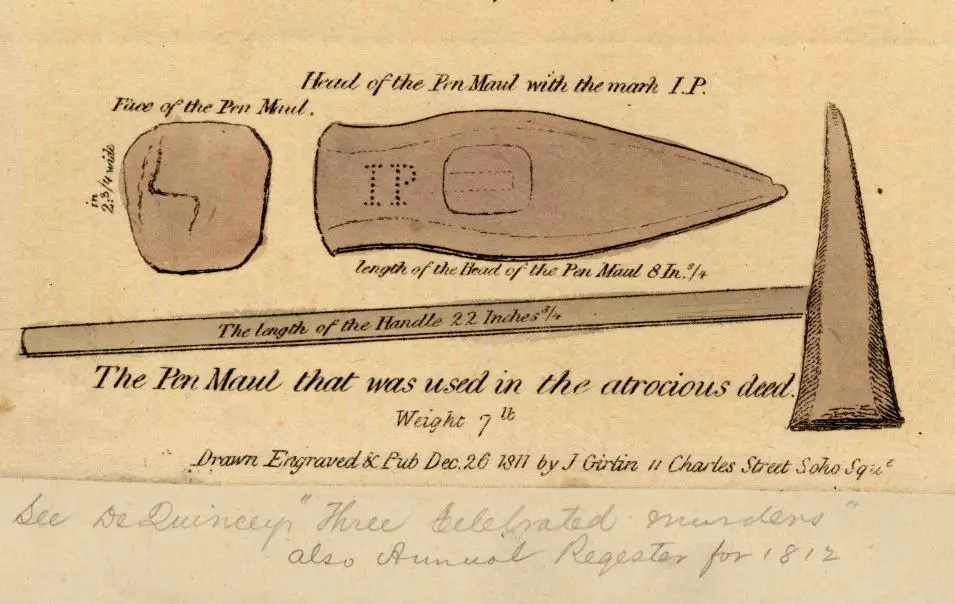 Head of the Pen Maul with the mark I.P.
Face of the Pen Maul.
in
2.3/4 wide
IP
length of the Head of the Pen Maul 8 In. 3/4
The length of the Handle 22 Inches 3/4
The Pen Maul that was used in the atrocious deed.
Weight 7 lb
Drawn Engraved & Pub Dec. 26 1811 by J Girtin 11 Charles Street Soho Sque
See DeQuincey "Three Celebrated murders"
also Annual Regester for 1812